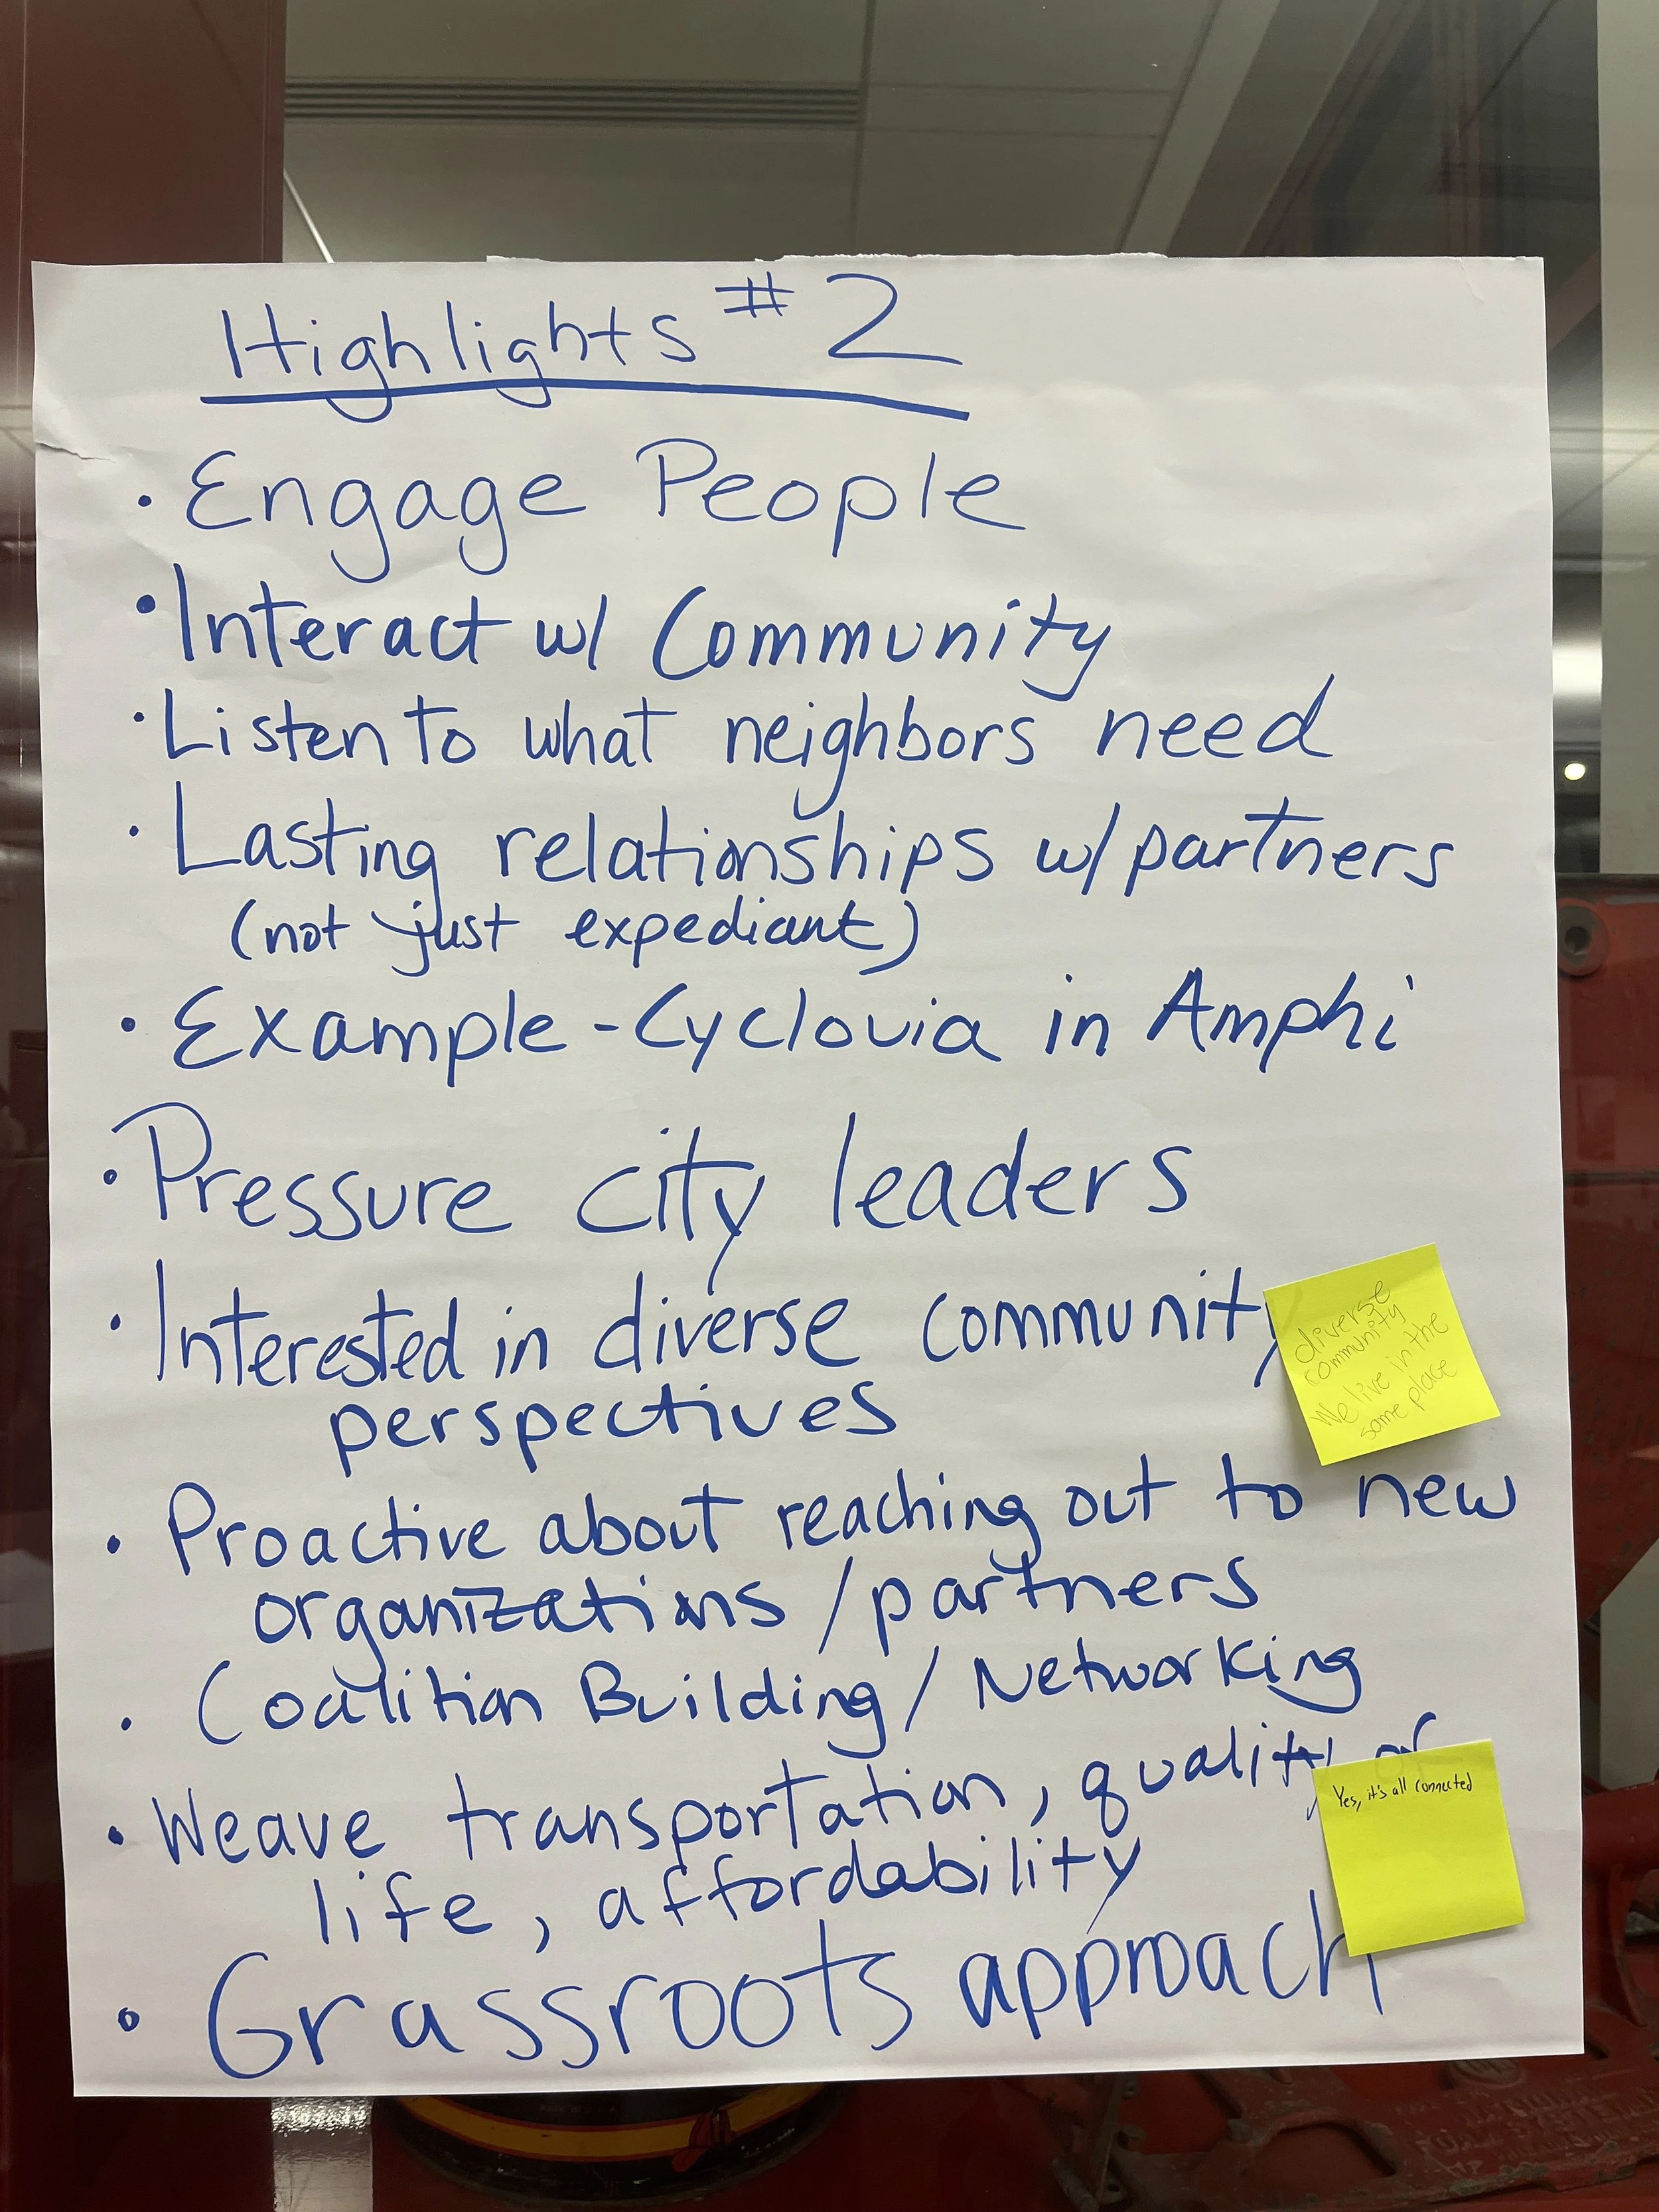 Highlights #2
• Engage People
• Interact w/ Community
• Listen to what neighbors need
• Lasting relationships w/ partners
(not just expediant)
• Example - Cyclovia in Amphi
• Pressure city leaders
• Interested in diverse community
perspectives
diverse
community
We live in the
same place
• Proactive about reaching out to new
organizations / partners
• Coalition Building / Networking
• Weave transportation, quality of
life, affordability
Yes, it's all connected
• Grassroots approach